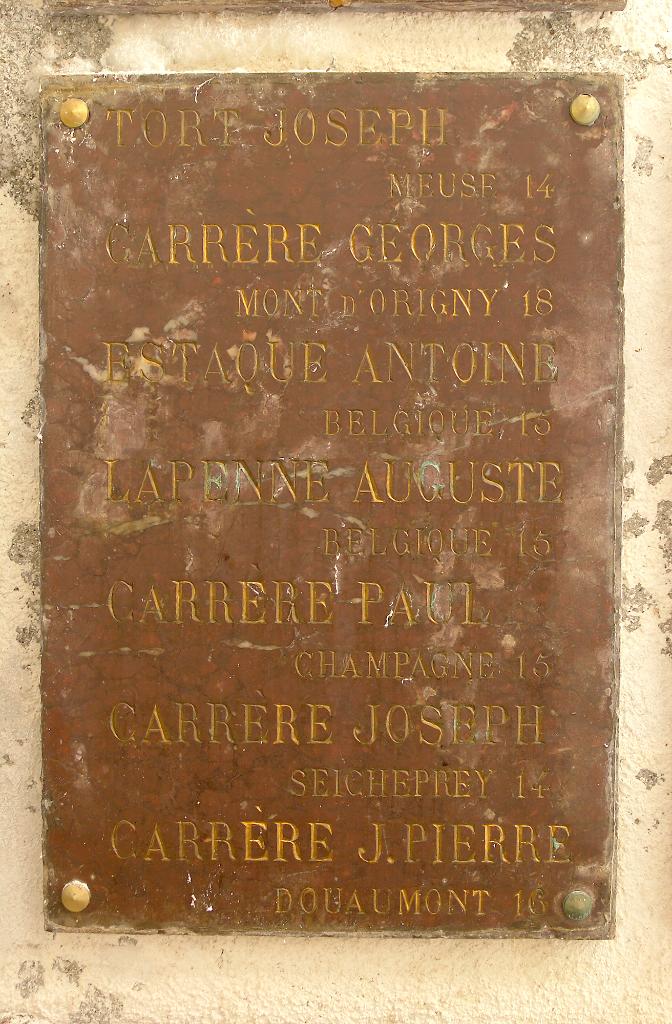 TORT JOSEPH
MEUSE 14
CARRÈRE GEORGES
MONT D'ORIGNY 18
ESTAQUE ANTOINE
BELGIQUE 15
LAPENNE AUGUSTE
BELGIQUE 15
CARRÈRE PAUL
CHAMPAGNE 15
CARRÈRE JOSEPH
SEICHEPREY 14
CARRÈRE J.PIERRE
DOUAUMONT 16